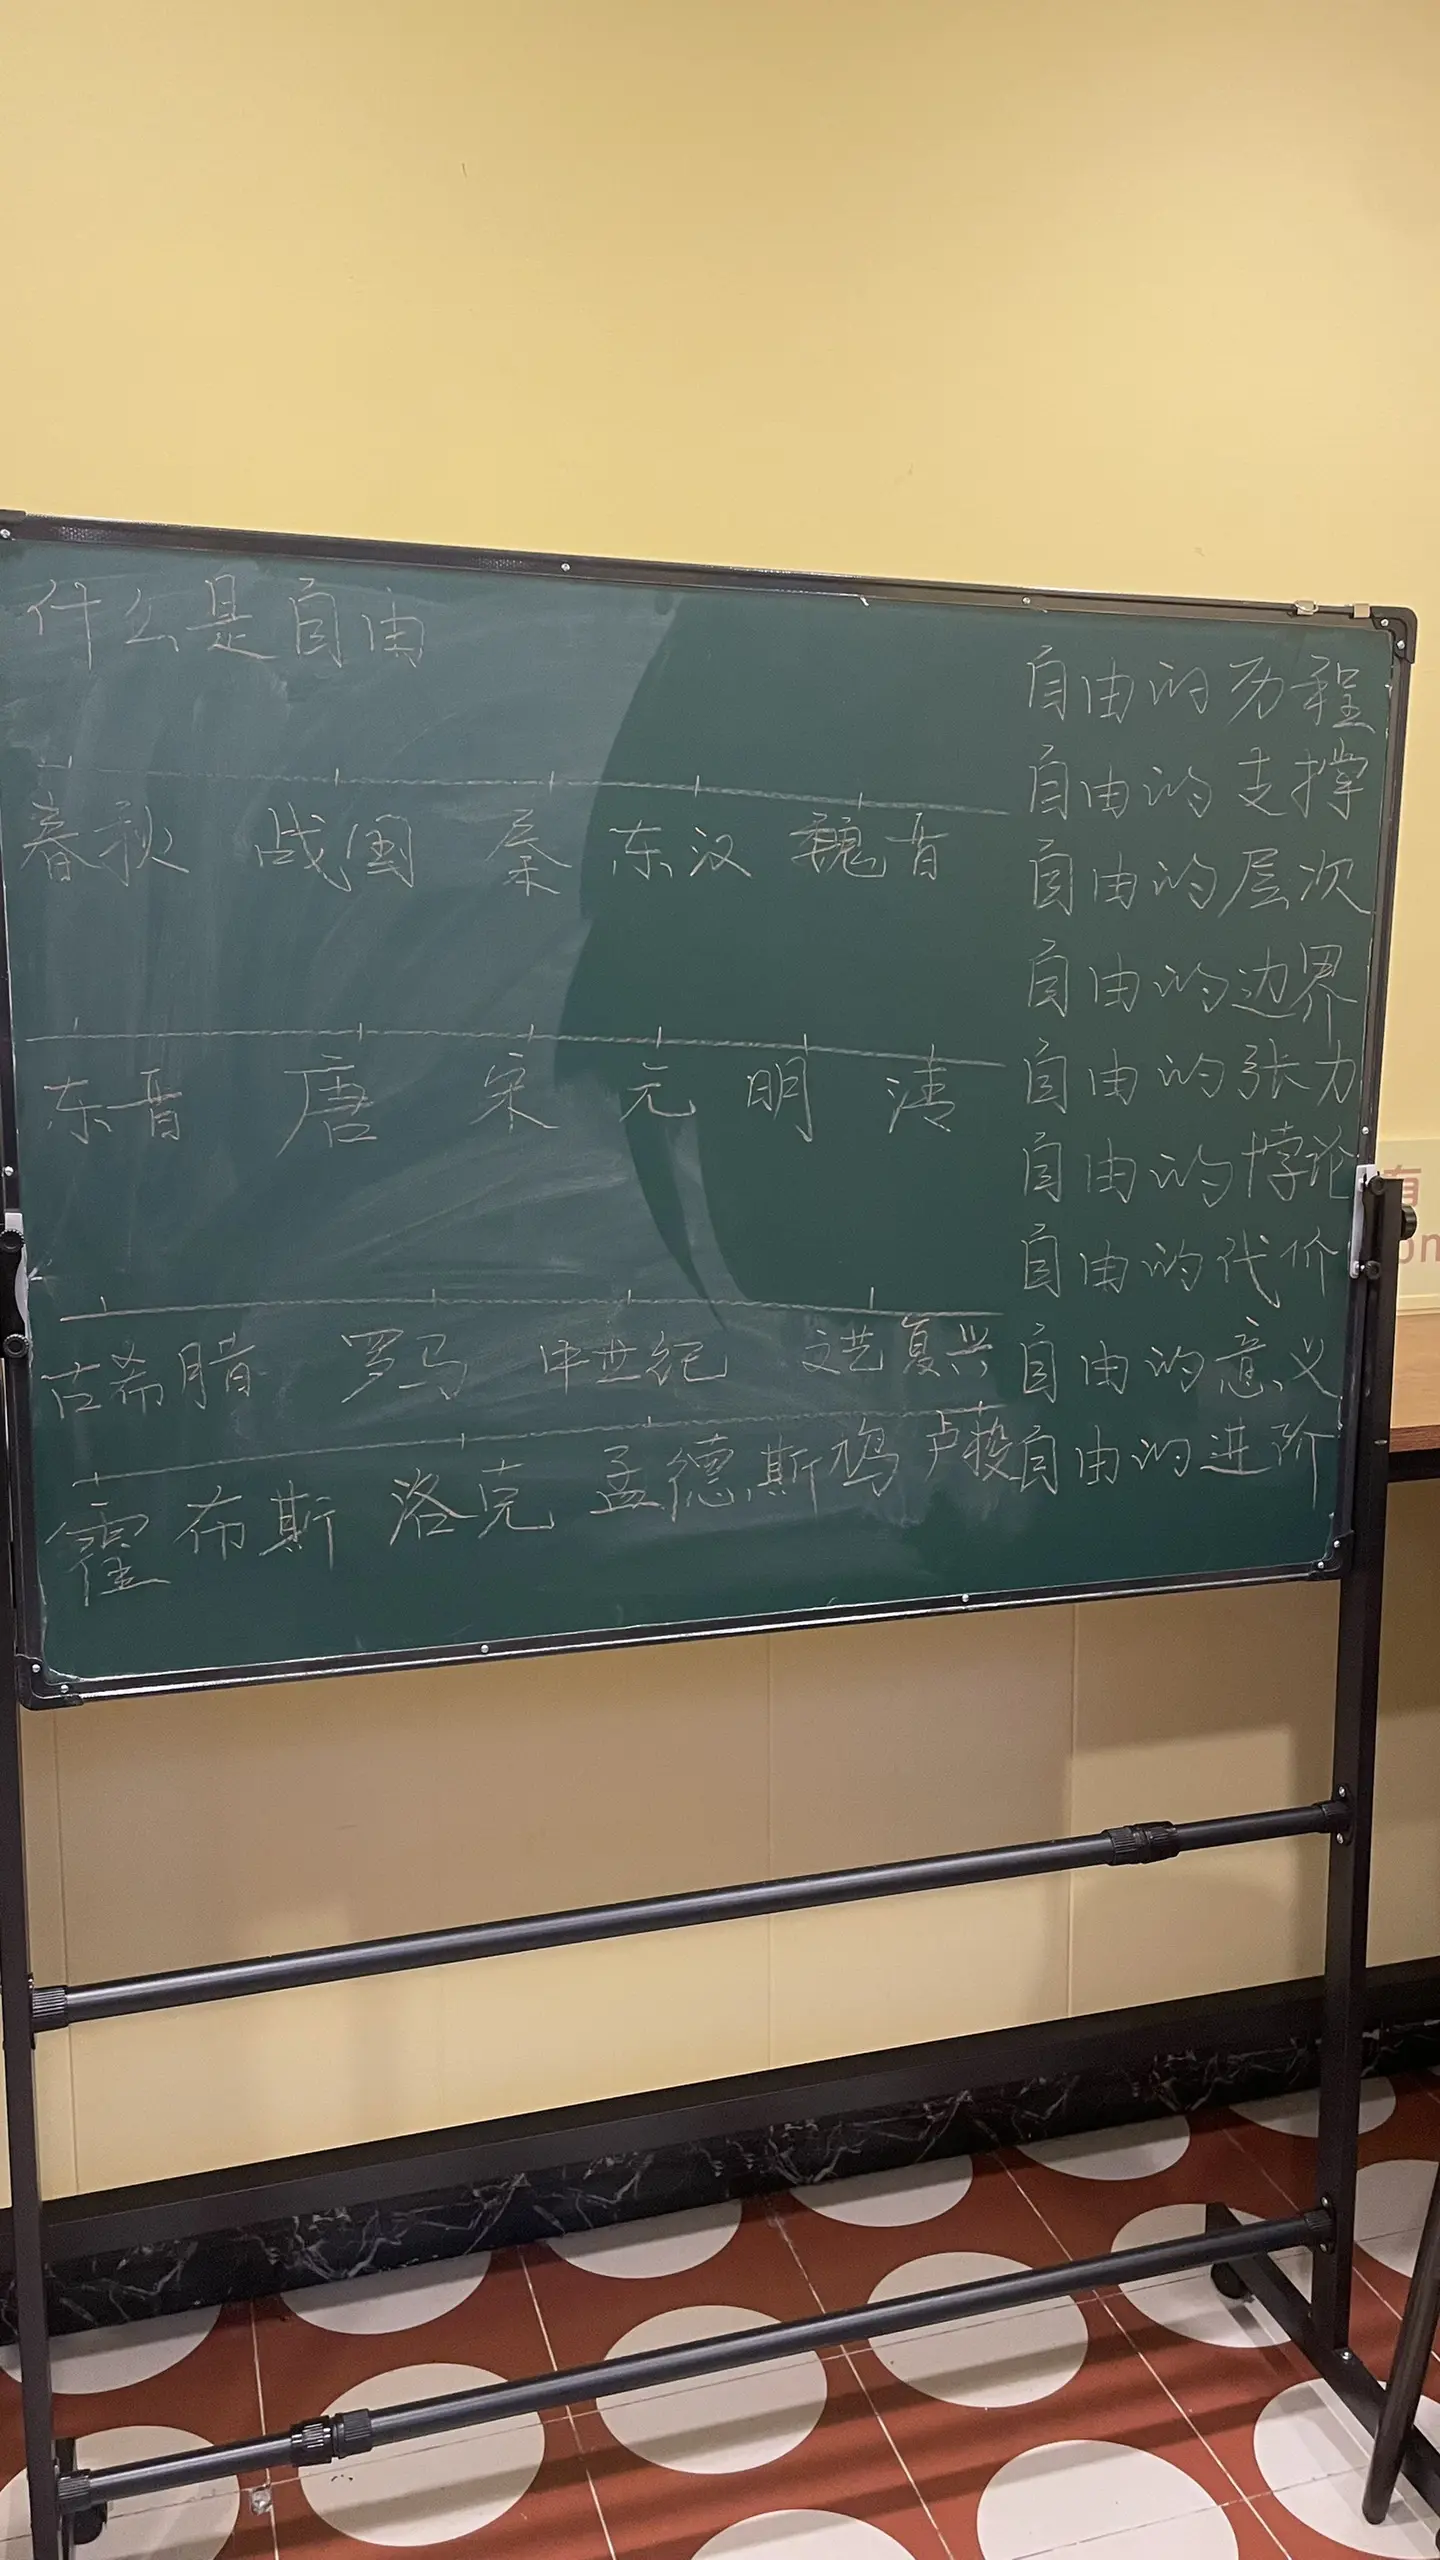 什么是自由
春秋 战国 秦 东汉 魏晋
东晋 唐 宋 元 明 清
古希腊 罗马 中世纪 文艺复兴
霍布斯 洛克 孟德斯鸠 卢梭
自由的历程
自由的支撑
自由的层次
自由的边界
自由的张力
自由的悖论
自由的代价
自由的意义
自由的进阶
有
on